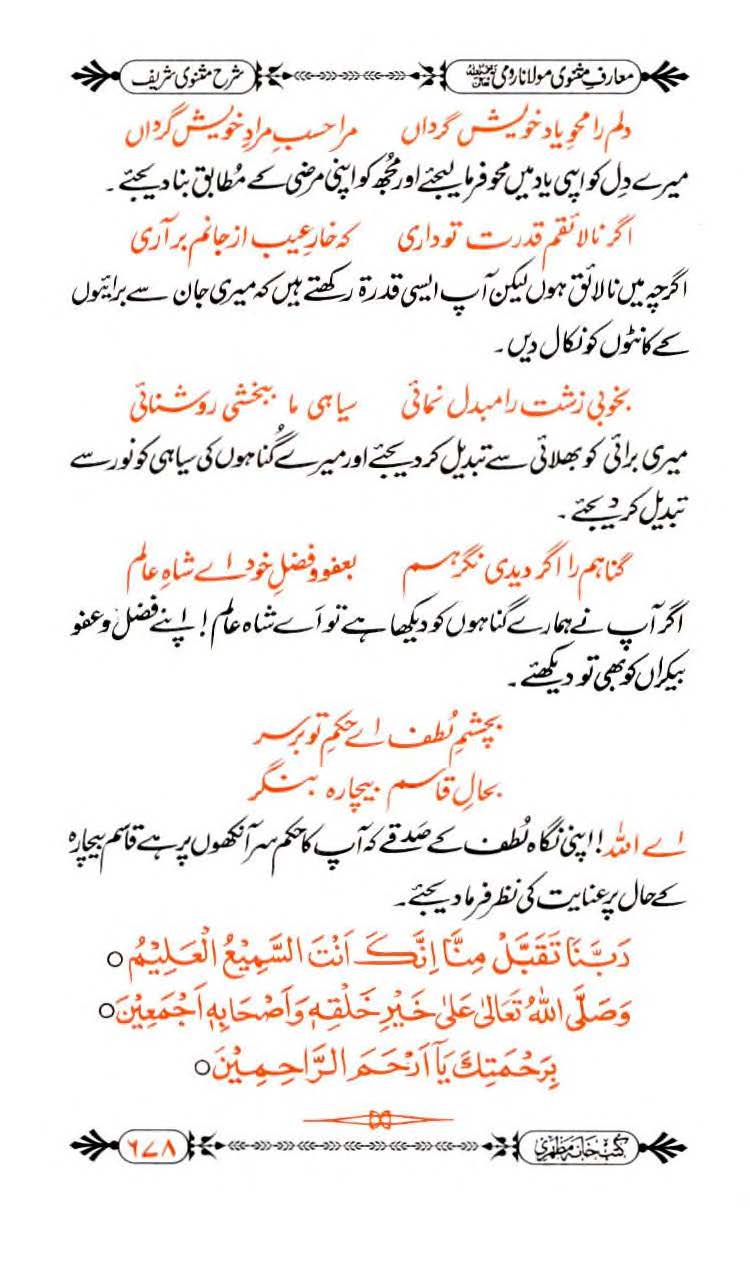 معارفِ مثنوی مولانا رومی رحمۃ اللہ تعالیٰ علیہ
شرح مثنوی شریف
دلم را محوِ یادِ خویش گرداں مرا حسبِ مرادِ خویش گرداں
میرے دِل کو اپنی یاد میں محو فرما لیجئے اور مجُھ کو اپنی مرضی کے مُطابق بنا دیجئے ۔
اگر نالائقم قدرت تو داری کہ خارِ عیب از جانم بر آری
اگرچہ میں نالائق ہوں لیکن آپ ایسی قدرۃ رکھتے ہیں کہ میری جان سے برائیوں
کے کانٹوں کو نکال دیں ۔
بخوبی زشت را مبدل نمائی سیاہی ما ببخشی روشنائی
میری برائی کو بھلائی سے تبدیل کر دیجئے اور میرے گُناہوں کی سیاہی کو نور سے
تبدیل کر دیجئے ۔
گناہم را اگر دیدی نگر ہسم بعفو و فضلِ خود اے شاہِ عالم
اگر آپ نے ہمارے گناہوں کو دیکھا ہے تو اَے شاہ عالم ! اپنے فضل و عفو
بیکراں کو بھی تو دیکھئے ۔
بچشمِ لُطف اے حکمِ تو بر سر
بحالِ قاسم بیچارہ بنگر
اے اللہ ! اپنی نگاہ لُطف کے صَدقے کہ آپ کا حکم سر آنکھوں پر ہے قاسم بیچارہ
کے حال پر عنایت کی نظر فرما دیجئے ۔
رَبَّنَا تَقَبَّلْ مِنَّا اِنَّکَ اَنْتَ السَّمِیْعُ الْعَلِیْمُ ○
وَصَلَّی اللهُ تَعَالیٰ عَلیٰ خَیْرِ خَلْقِهٖ وَاَصْحَابِهٖ اَجْمَعِیْنَ ○
بِرَحْمَتِكَ یَآ اَرْحَمَ الرَّاحِمِیْنَ ○
کتب خانہ مظہری
٦٧٨